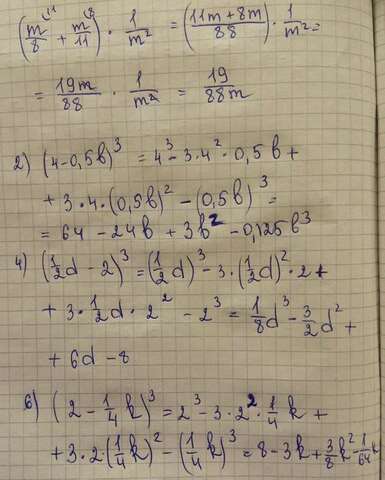 (m/8 \11 + m/11 \8) · 1/m² = ((11m + 8m)/88) · 1/m² =
= 19m/88 · 1/m² = 19/88m
2) (4-0,5b)³ = 4³ - 3·4² · 0,5b +
+ 3·4·(0,5b)² - (0,5b)³ =
= 64 - 24b + 3b² - 0,125b³
4) (1/2d - 2)³ = (1/2d)³ - 3·(1/2d)² · 2 +
+ 3·1/2d · 2² - 2³ = 1/8d³ - 3/2d² +
+ 6d - 8
6) (2 - 1/4k)³ = 2³ - 3·2² · 1/4k +
+ 3·2·(1/4k)² - (1/4k)³ = 8 - 3k + 3/8k² - 1/64k